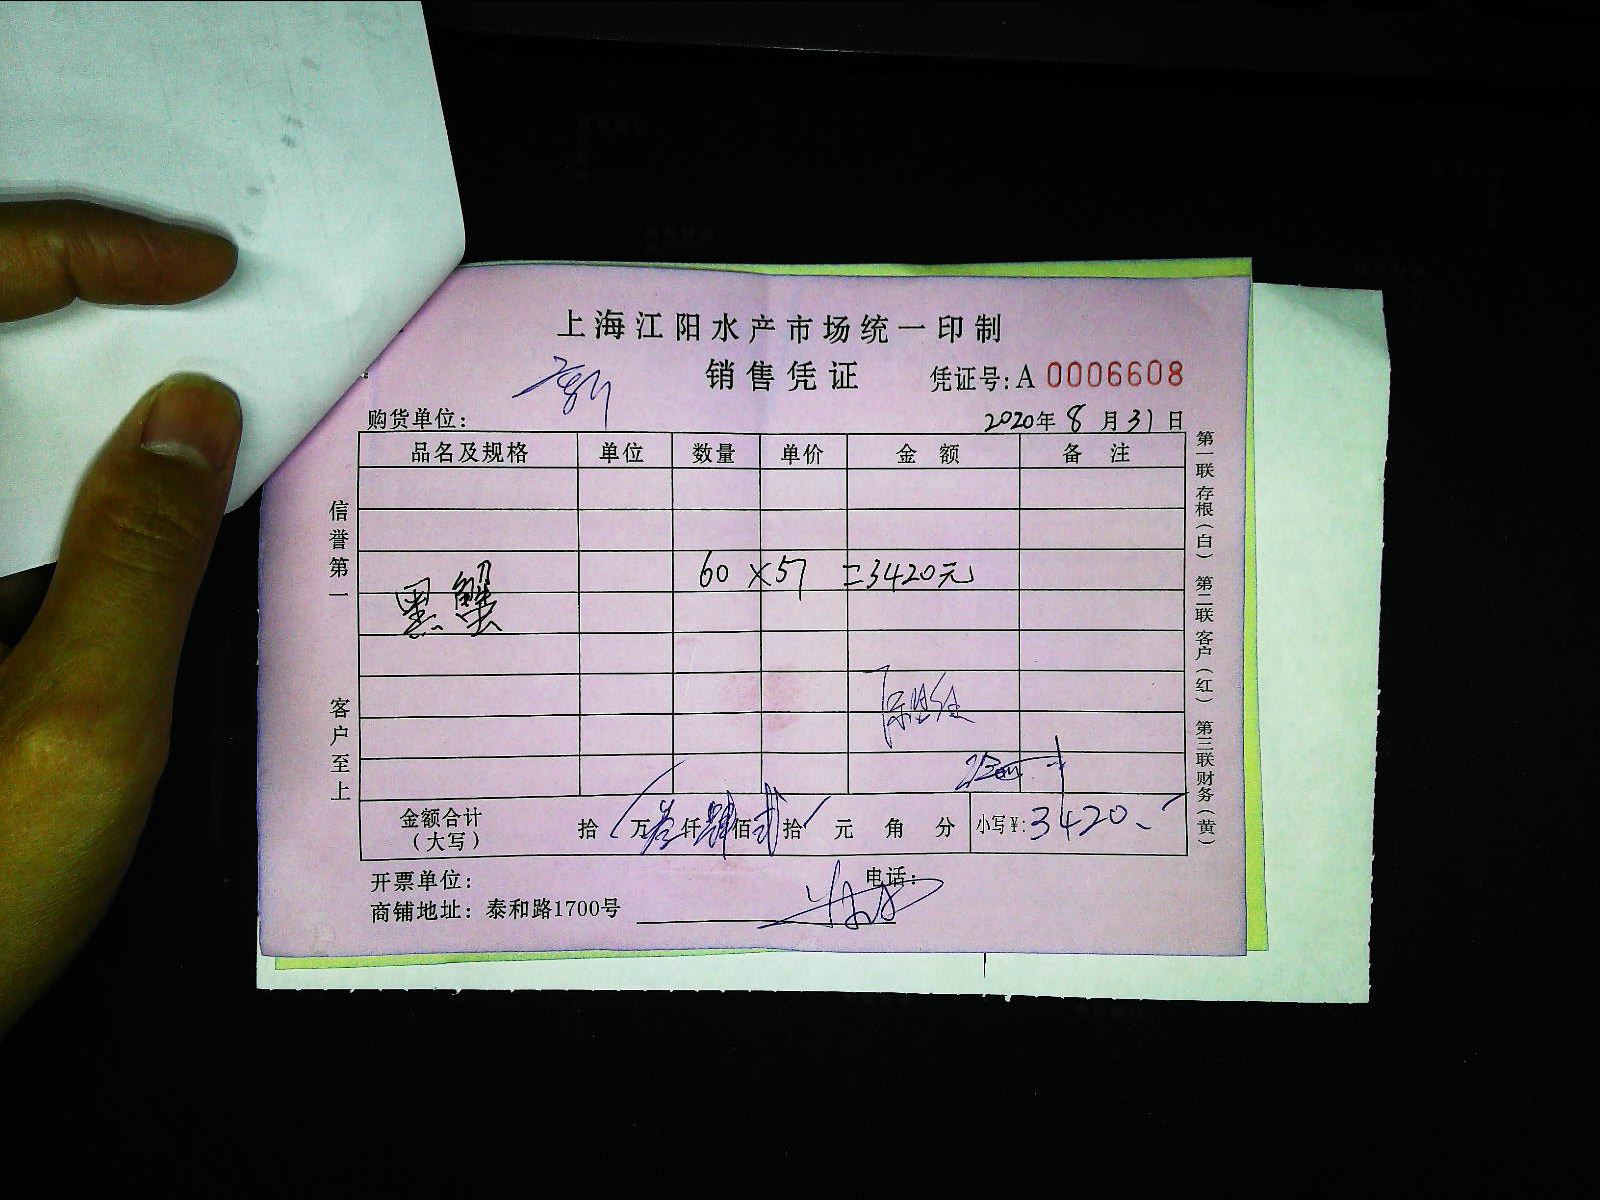 上海江阳水产市场统一印制
销售凭证 凭证号: A 0006608
购货单位: 2020年 8 月 31 日
品名及规格 单位 数量 单价 金额 备注
黑蟹 60 × 57 = 3420元
金额合计（大写） 拾 万 叁 仟 肆 佰 贰 拾 元 角 分 小写¥: 3420.
开票单位: 电话:
商铺地址: 泰和路1700号
信誉第一
客户至上
第一联存根（白） 第二联客户（红） 第三联财务（黄）